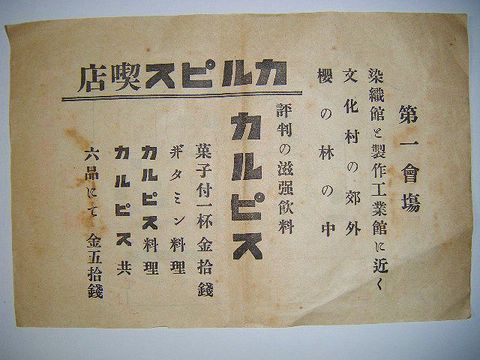 第一會塲
染織館と製作工業館に近く
文化村の郊外
櫻の林の中
カルピス喫店
評判の滋强飲料
カルピス
菓子付一杯金拾錢
ヸタミン料理
カルピス料理
カルピス共
六品にて 金五拾錢